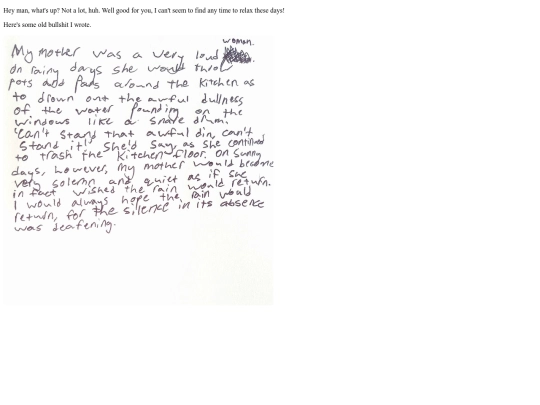 Hey man, what's up? Not a lot, huh. Well good for you, I can't seem to find any time to relax these days!
Here's some old bullshit I wrote.
My mother was a very loud woman.
On rainy days she would throw
pots and pans around the kitchen as
to drown out the awful dullness
of the water pounding on the
windows like a snare drum.
"Can't stand that awful din, can't
stand it!" She'd say, as she continued
to trash the kitchen floor. On sunny
days, however, my mother would become
very solemn and quiet as if she
in fact wished the rain would return.
I would always hope the rain would
return, for the silence in its absence
was deafening.